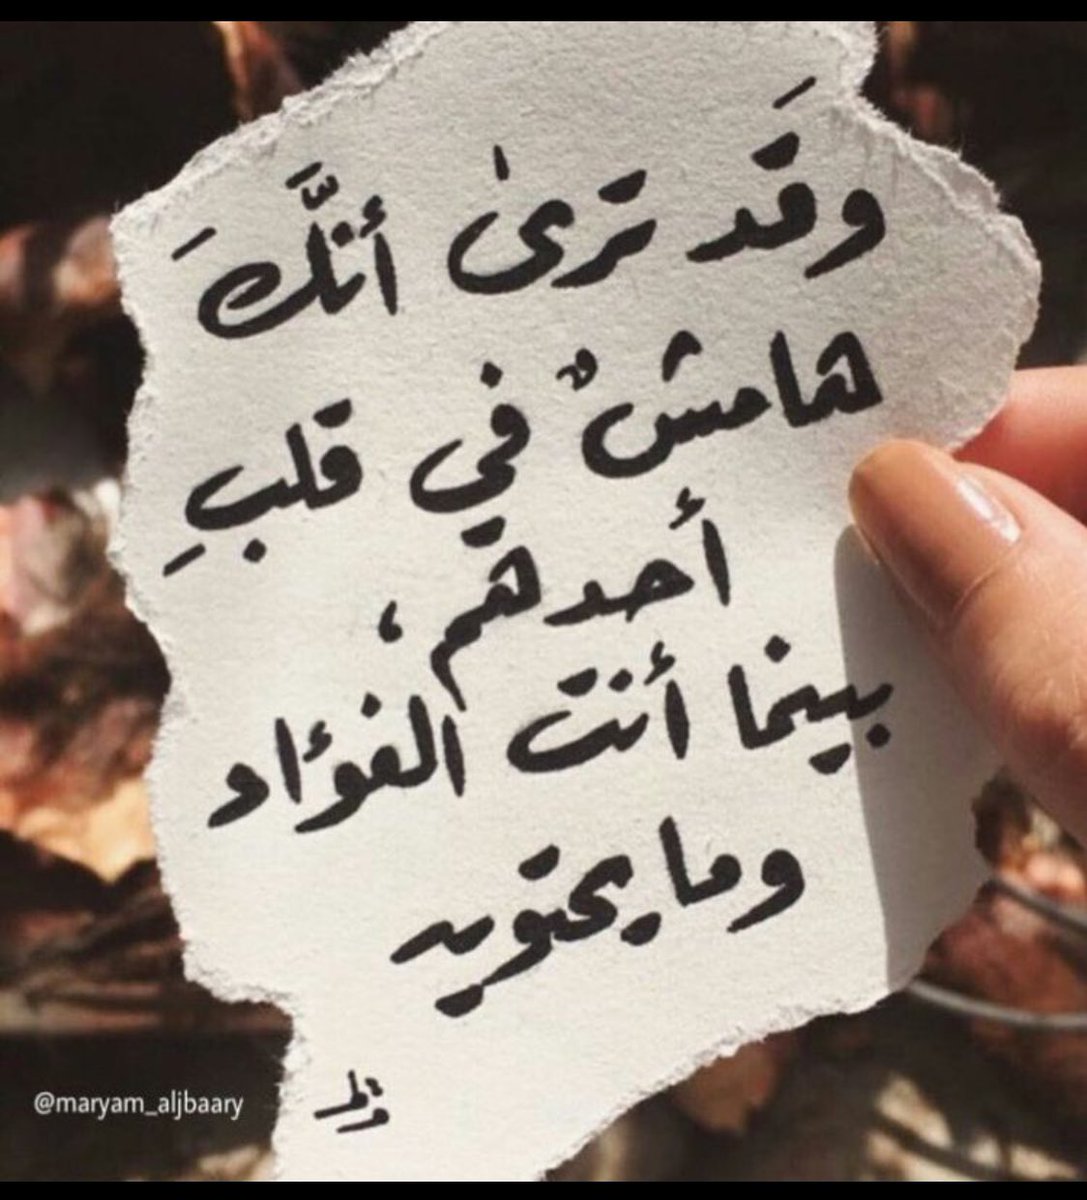 وقَد ترىٰ أنَّكَ
هامشٌ في قلبِ
أحدهم،
بينما أنت الفؤاد
وما يحتويه
@maryam_aljbaary